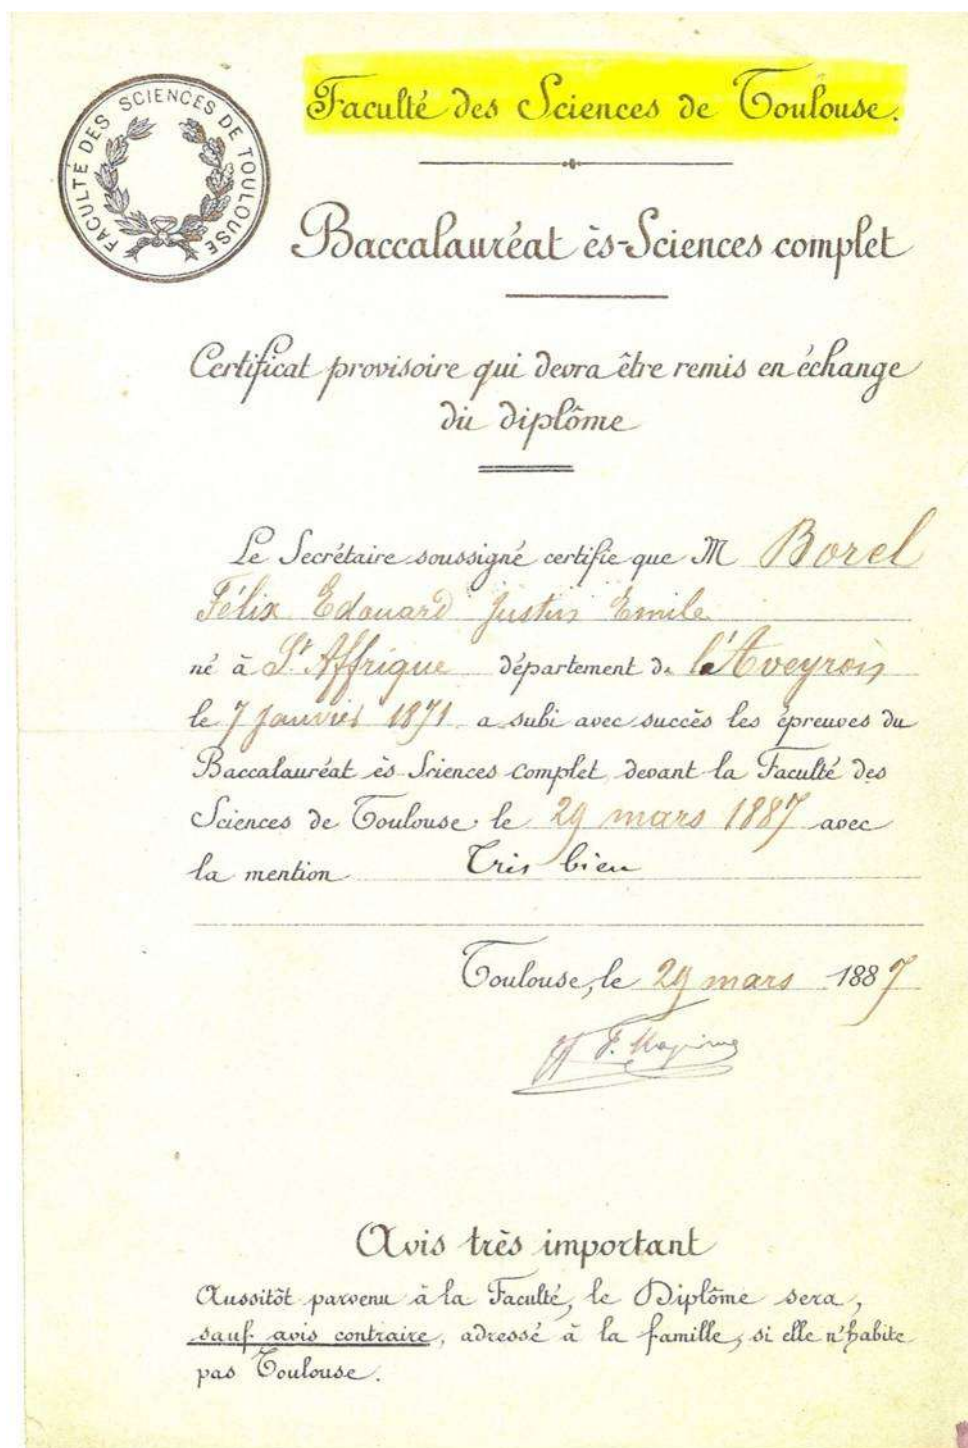 FACULTÉ DES SCIENCES DE TOULOUSE
Faculté des Sciences de Toulouse.
Baccalauréat ès-Sciences complet
Certificat provisoire qui devra être remis en échange
du diplôme
Le Secrétaire soussigné certifie que M Borel
Félix Edouard Justin Emile
né à St Affrique département de l'Aveyron
le 7 Janvier 1871 a subi avec succès les épreuves du
Baccalauréat ès-Sciences complet devant la Faculté des
Sciences de Toulouse le 29 mars 1887 avec
la mention Très bien
Toulouse, le 29 mars 1887
Avis très important
Aussitôt parvenu à la Faculté, le Diplôme sera,
sauf avis contraire, adressé à la famille, si elle n'habite
pas Toulouse.